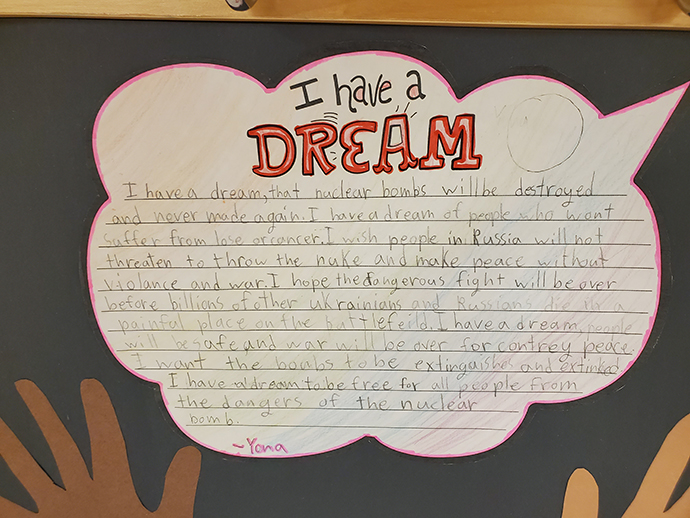 I have a
DREAM
I have a dream, that nuclear bombs will be destroyed
and never made again. I have a dream of people who wont
suffer from lose or cancer. I wish people in Russia will not
threaten to throw the nuke and make peace without
violance and war. I hope the dangerous fight will be over
before billions of other Ukrainians and Russians die in a
painful place on the buttlefeild. I have a dream, people
will be safe and war will be over for contrey peace.
I want the bombs to be extinguishes and extinked
I have a dream to be free for all people from
the dangers of the nuclear
bomb.
~Yana